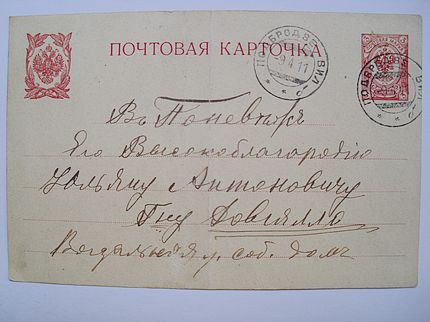 ПОЧТОВАЯ КАРТОЧКА
ПОДБРОДЗЕ ВИЛ.
-9.4.11
ПОДБРОДЗЕ ВИЛ.
Въ Поневѣжъ
Его Высокоблагородію
Юльяну Антоновичу
Гну Довгялло
соб. домъ